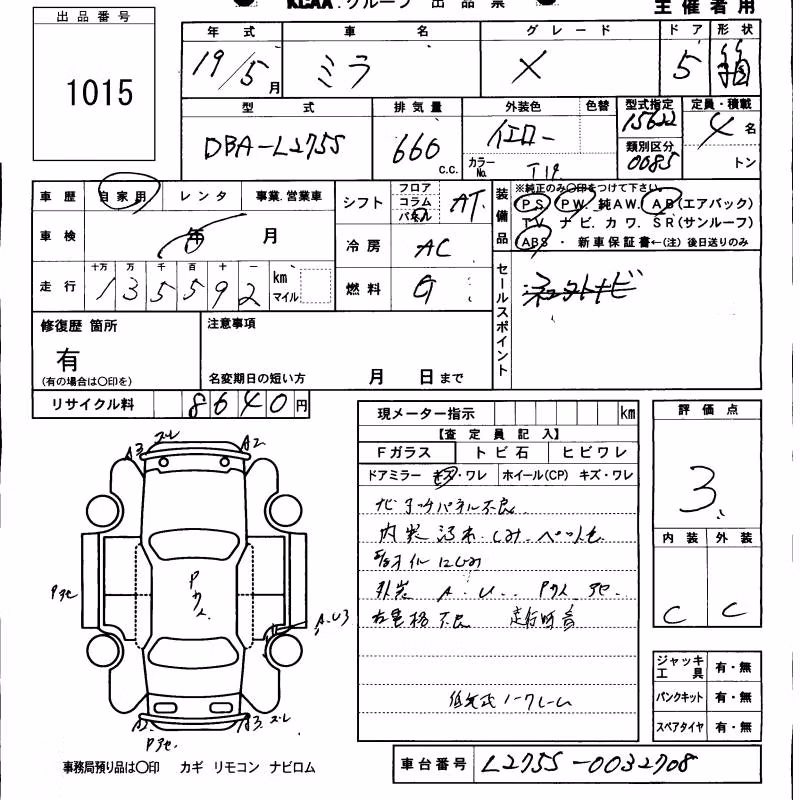 KCAA.グループ 出品票
主催者用
出品番号
1015
年式 車名 グレード ドア 形状
19/5月 ミラ X 5 箱
型式 排気量 外装色 色替 型式指定 定員・積載
DBA-L275S 660 c.c. イエロー カラーNo. 15622 4名
類別区分 0085 トン
車歴 自家用 レンタ 事業.営業車
シフト フロア コラム パネル AT
装備品 ※純正のみ〇印をつけて下さい。
PS PW 純AW. AB(エアバック)
TV. ナビ. カワ. SR(サンルーフ)
ABS ・ 新車保証書←(注) 後日送りのみ
車検 年 月
冷房 AC
走行 十万 万 千 百 十 一 km マイル
135592
燃料 G
セールスポイント
修復歴 箇所
有
(有の場合は〇印を)
注意事項
名変期日の短い方 月 日まで
リサイクル料 8640円
現メーター指示 km
【査定員記入】
Fガラス トビ石 ヒビワレ
ドアミラー キズ・ワレ ホイール(CP) キズ・ワレ
ナビ タッチパネル不良
内装 汚れ. しみ.
オイルにじみ
外装 A. U..
不良
ノークレーム
評価点
3
内装 外装
C C
ジャッキ 工具 有・無
パンクキット 有・無
スペアタイヤ 有・無
A3 ズレ A2
A.U3
A3 ズレ
車台番号 L275S-0032708
事務局預り品は〇印 カギ リモコン ナビロム